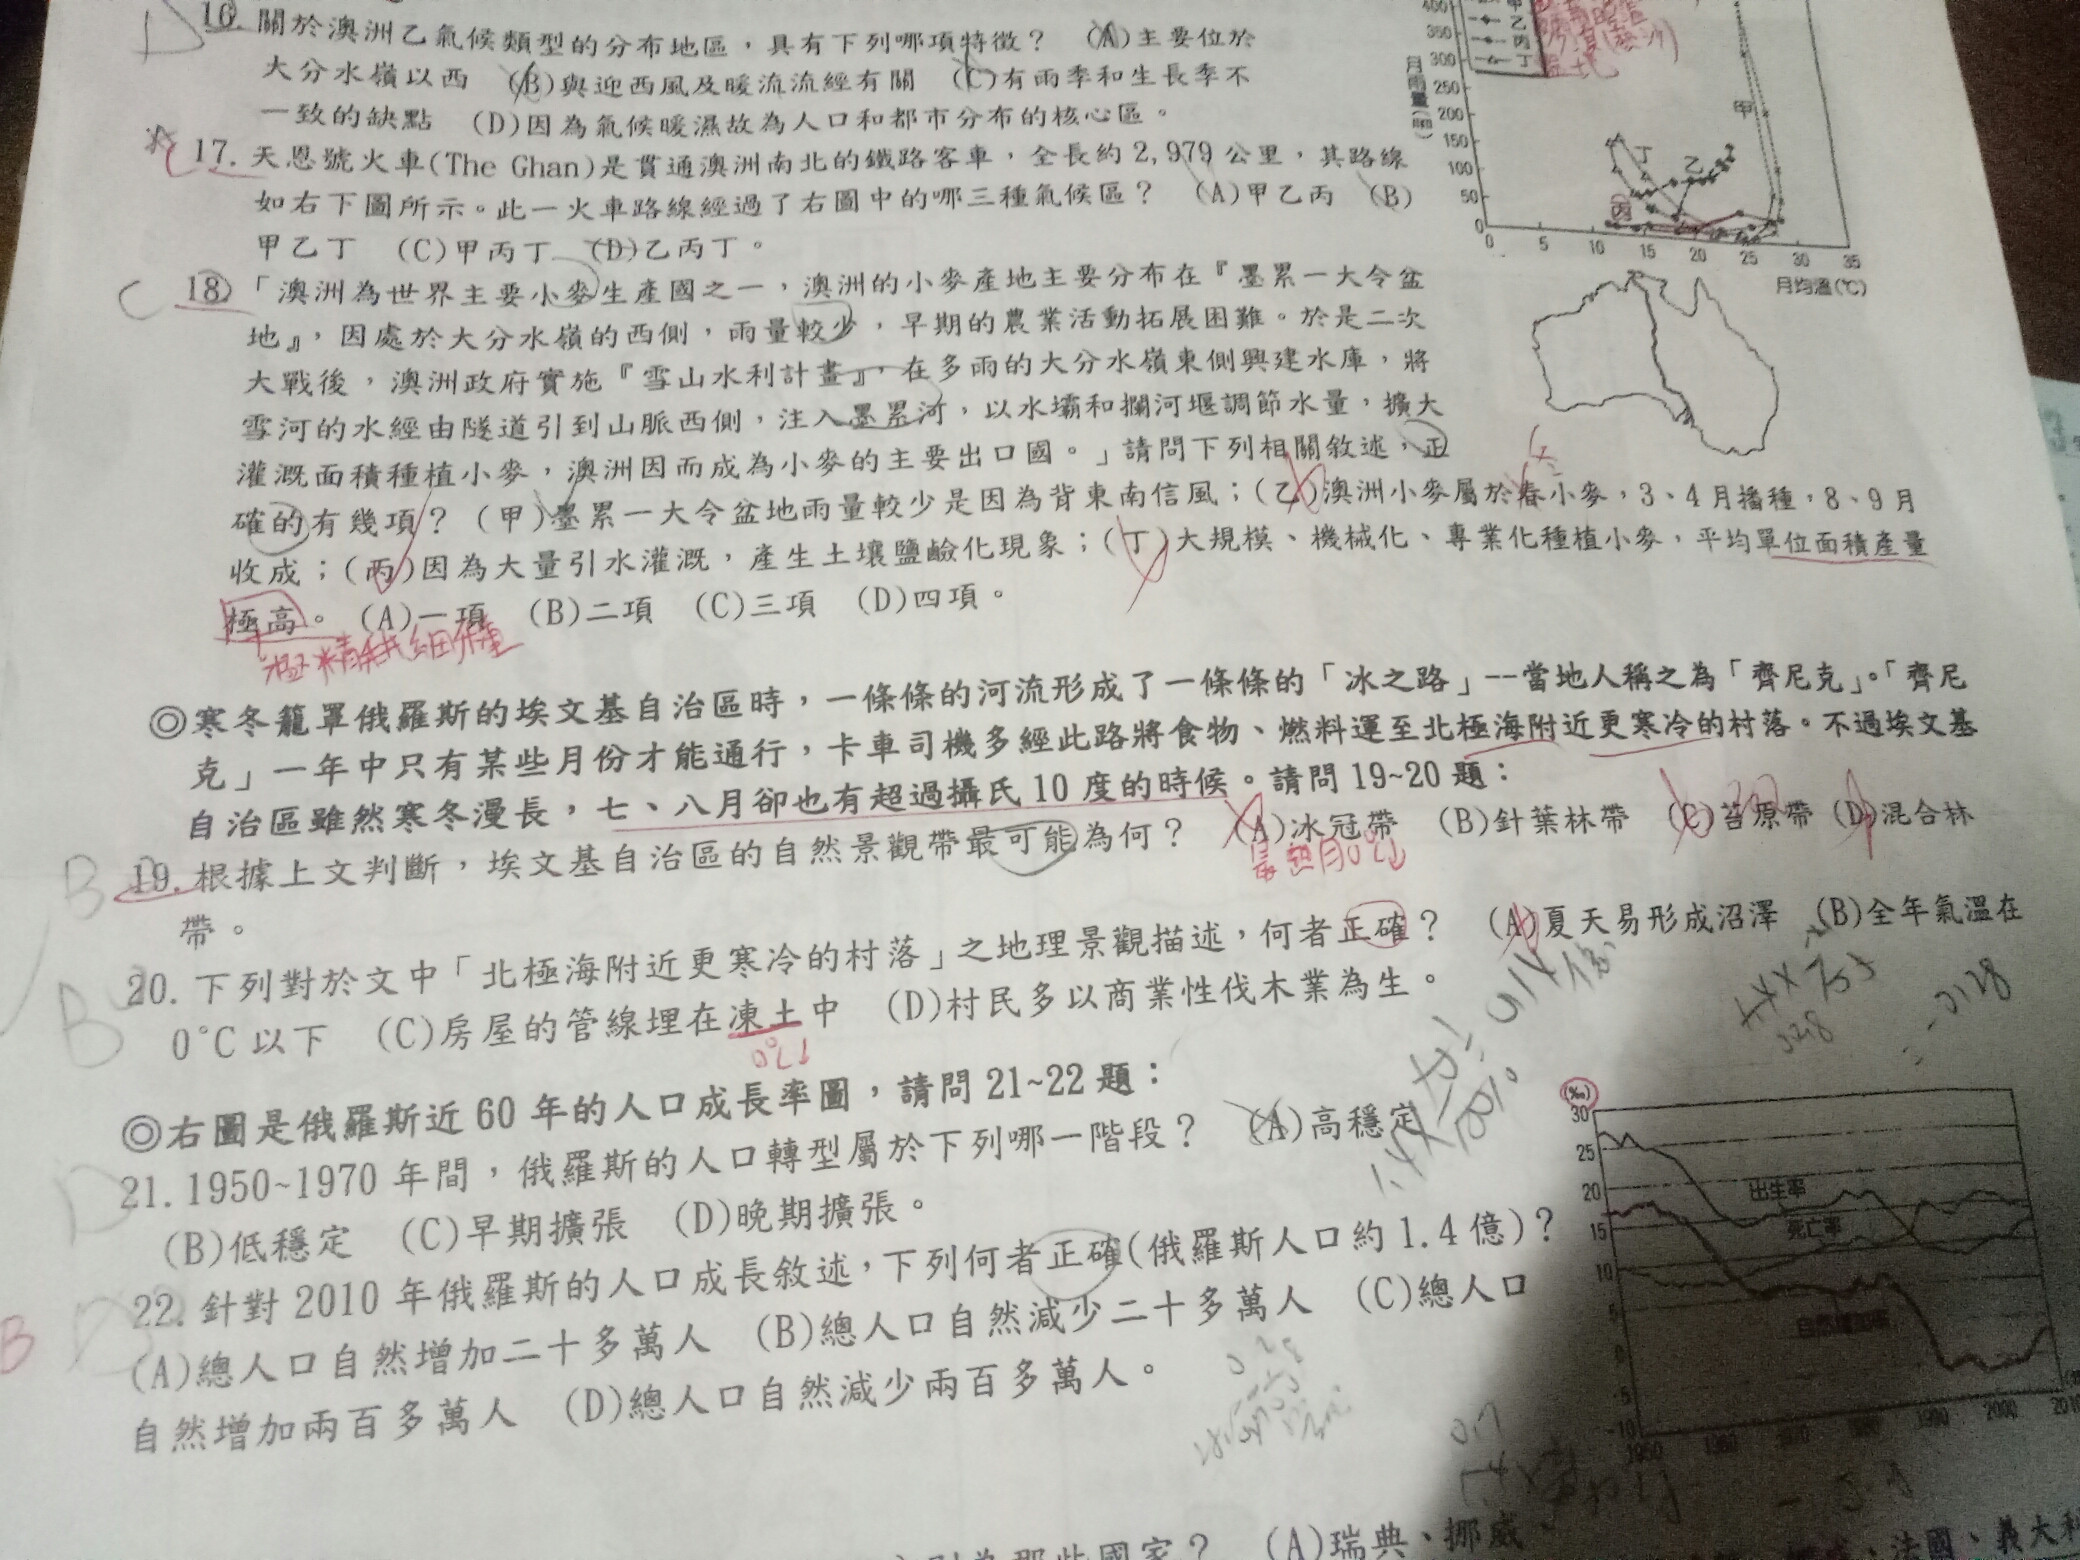 D 16. 關於澳洲乙氣候類型的分布地區，具有下列哪項特徵？ (A)主要位於
大分水嶺以西 (B)與迎西風及暖流流經有關 (C)有雨季和生長季不
一致的缺點 (D)因為氣候暖濕故為人口和都市分布的核心區。
C 17. 天恩號火車(The Ghan)是貫通澳洲南北的鐵路客車，全長約2,979公里，其路線
如右下圖所示。此一火車路線經過了右圖中的哪三種氣候區？ (A)甲乙丙 (B)
甲乙丁 (C)甲丙丁 (D)乙丙丁。
400
350
300
250
200
150
100
50
0
月雨量(㎜)
甲
乙
丙
丁
甲
乙
丁
丙
0 5 10 15 20 25 30 35
月均溫(℃)
C 18. 「澳洲為世界主要小麥生產國之一，澳洲的小麥產地主要分布在『墨累—大令盆
地』，因處於大分水嶺的西側，雨量較少，早期的農業活動拓展困難。於是二次
大戰後，澳洲政府實施『雪山水利計畫』，在多雨的大分水嶺東側興建水庫，將
雪河的水經由隧道引到山脈西側，注入墨累河，以水壩和攔河堰調節水量，擴大
灌溉面積種植小麥，澳洲因而成為小麥的主要出口國。」請問下列相關敘述，正
冬
確的有幾項？ (甲)墨累—大令盆地雨量較少是因為背東南信風；(乙)澳洲小麥屬於春小麥，3、4月播種，8、9月
收成；(丙)因為大量引水灌溉，產生土壤鹽鹼化現象；(丁)大規模、機械化、專業化種植小麥，平均單位面積產量
極高。 (A)一項 (B)二項 (C)三項 (D)四項。
精耕細種
◎寒冬籠罩俄羅斯的埃文基自治區時，一條條的河流形成了一條條的「冰之路」--當地人稱之為「齊尼克」。「齊尼
克」一年中只有某些月份才能通行，卡車司機多經此路將食物、燃料運至北極海附近更寒冷的村落。不過埃文基
自治區雖然寒冬漫長，七、八月卻也有超過攝氏10度的時候。請問19~20題：
B 19. 根據上文判斷，埃文基自治區的自然景觀帶最可能為何？ (A)冰冠帶 (B)針葉林帶 (C)苔原帶 (D)混合林
最熱月0℃↓
帶。
B 20. 下列對於文中「北極海附近更寒冷的村落」之地理景觀描述，何者正確？ (A)夏天易形成沼澤 (B)全年氣溫在
0°C以下 (C)房屋的管線埋在凍土中 (D)村民多以商業性伐木業為生。
0℃↓
◎右圖是俄羅斯近60年的人口成長率圖，請問21~22題：
D 21. 1950~1970年間，俄羅斯的人口轉型屬於下列哪一階段？ (A)高穩定
(B)低穩定 (C)早期擴張 (D)晚期擴張。
B 22. 針對2010年俄羅斯的人口成長敘述，下列何者正確(俄羅斯人口約1.4億)？
(A)總人口自然增加二十多萬人 (B)總人口自然減少二十多萬人 (C)總人口
自然增加兩百多萬人 (D)總人口自然減少兩百多萬人。
(‰)
30
25
20
15
10
5
0
-5
-10
出生率
死亡率
自然增加率
1950 1960 1970 1980 1990 2000 2010
(A)瑞典、挪威
法國、義大利